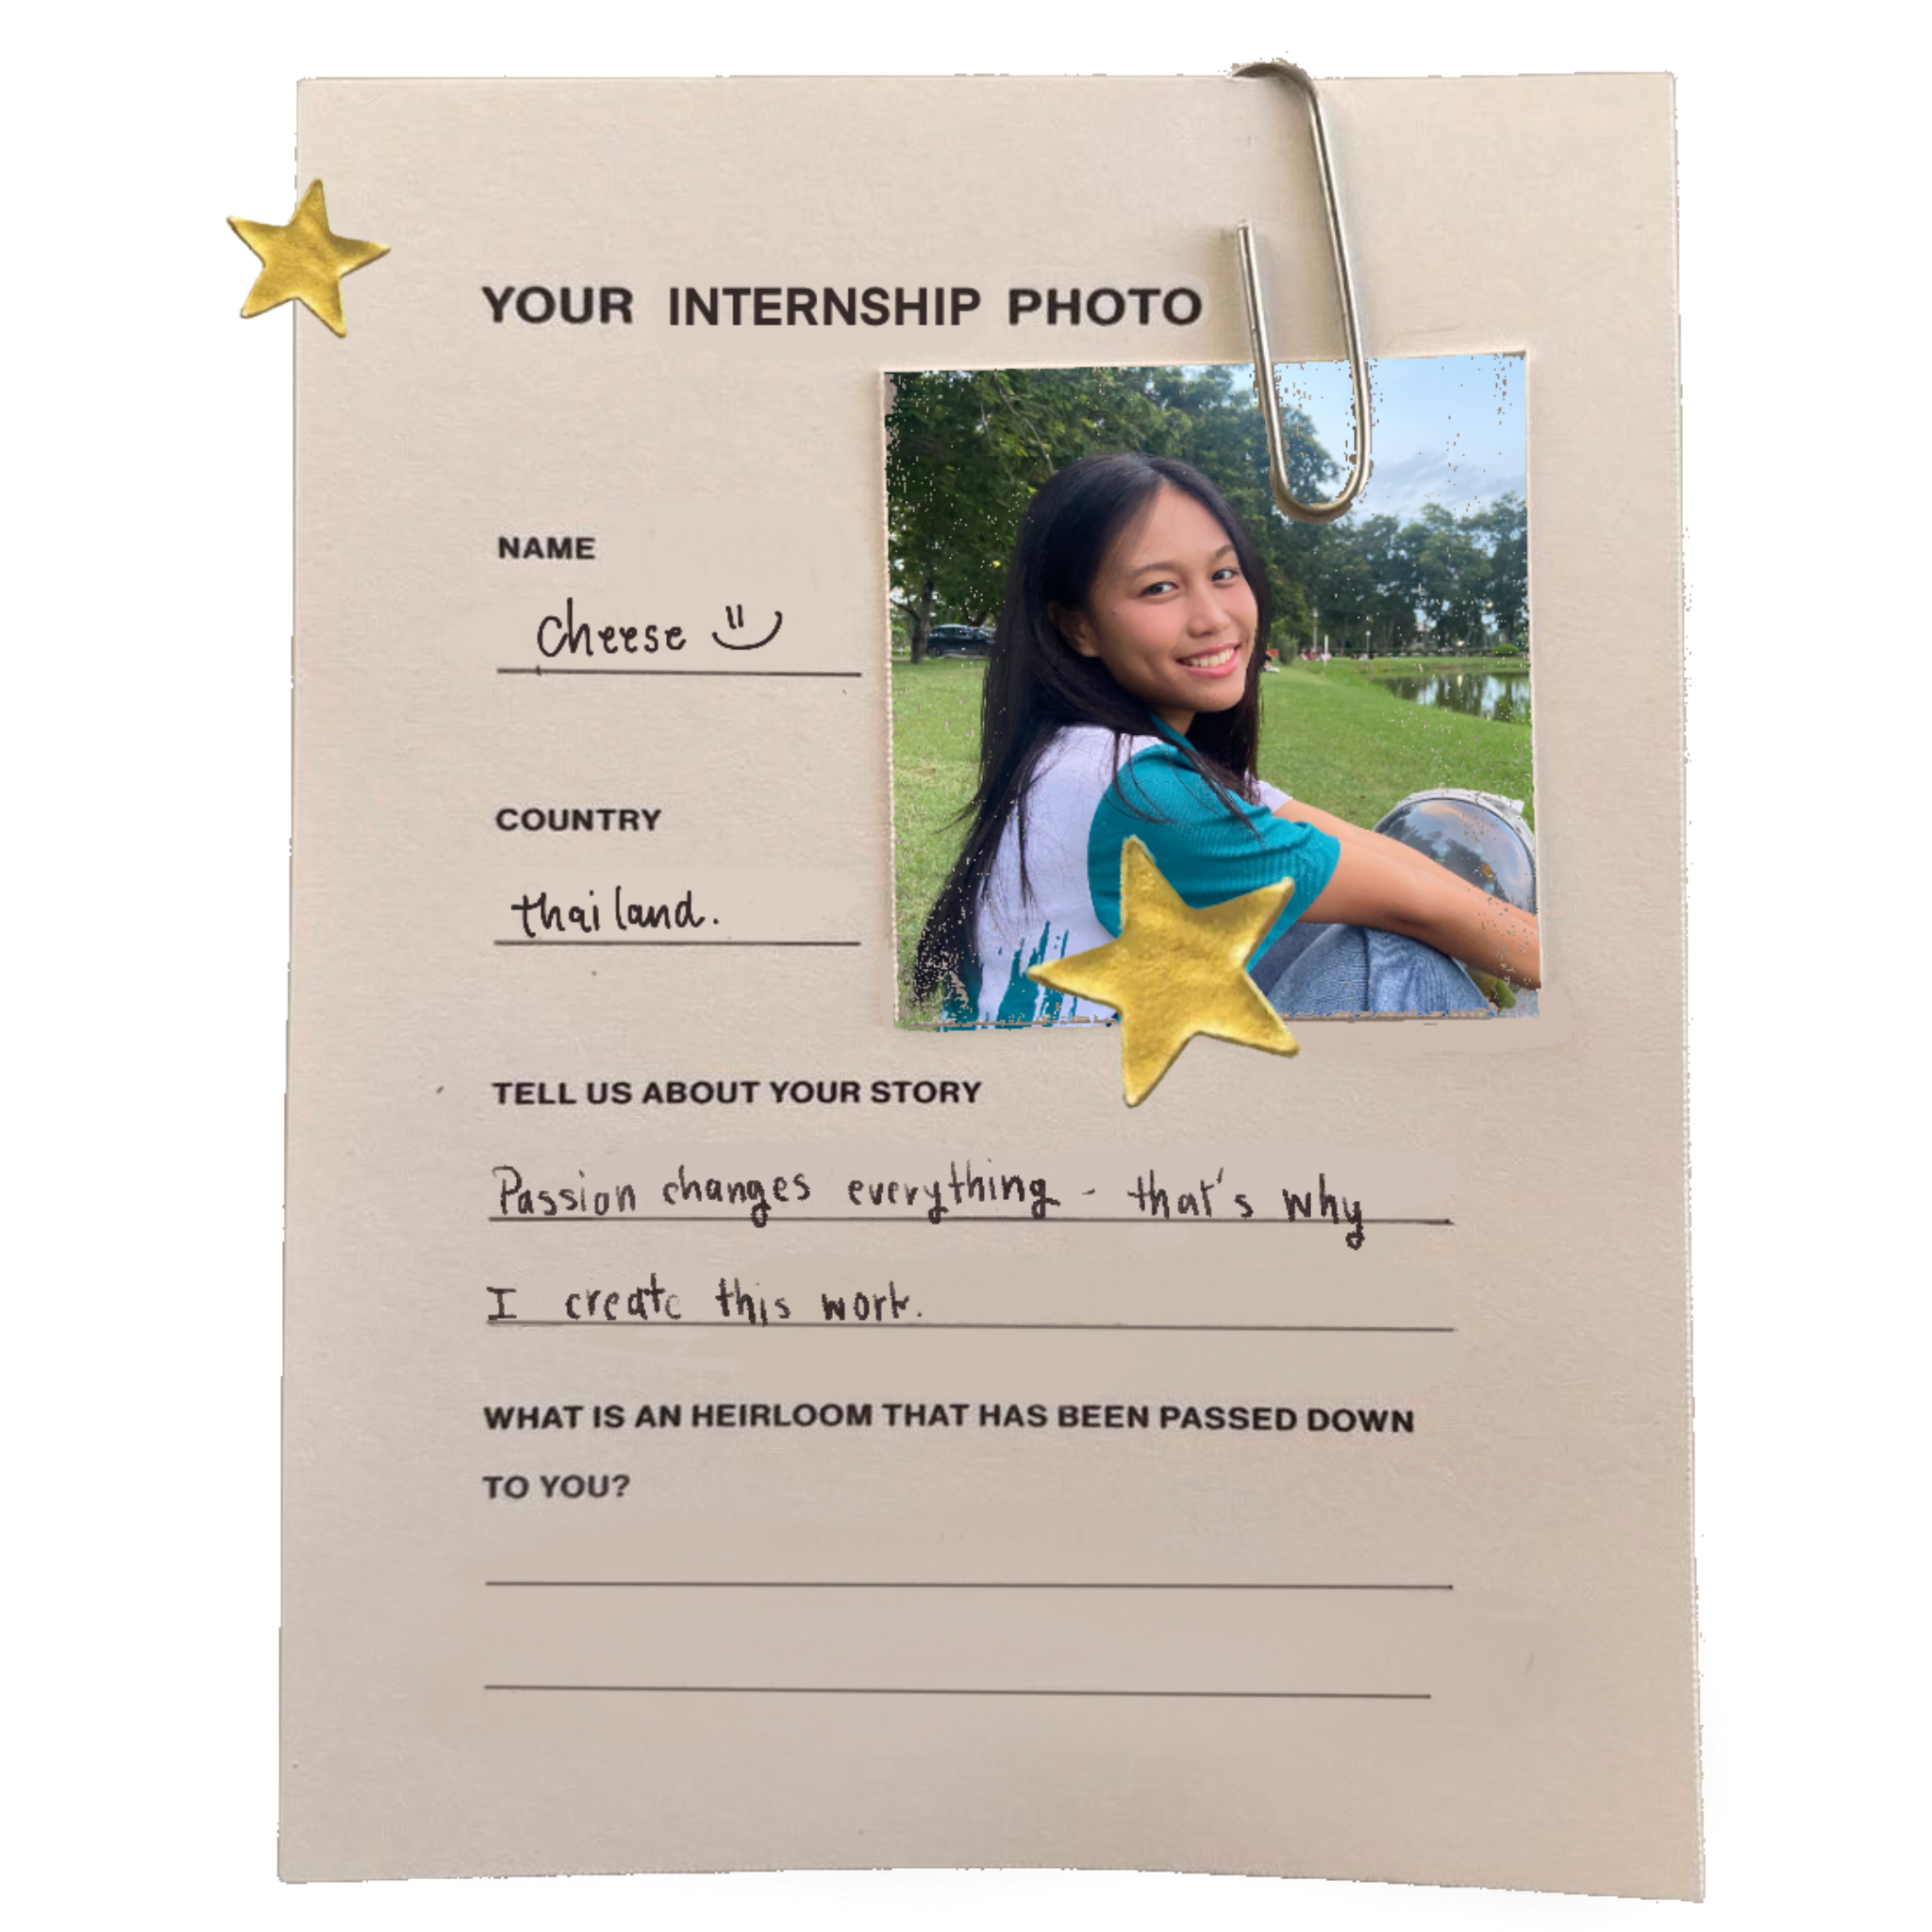 YOUR INTERNSHIP PHOTO
NAME
Cheese
COUNTRY
thailand.
TELL US ABOUT YOUR STORY
Passion changes everything - that's why
I create this work.
WHAT IS AN HEIRLOOM THAT HAS BEEN PASSED DOWN
TO YOU?